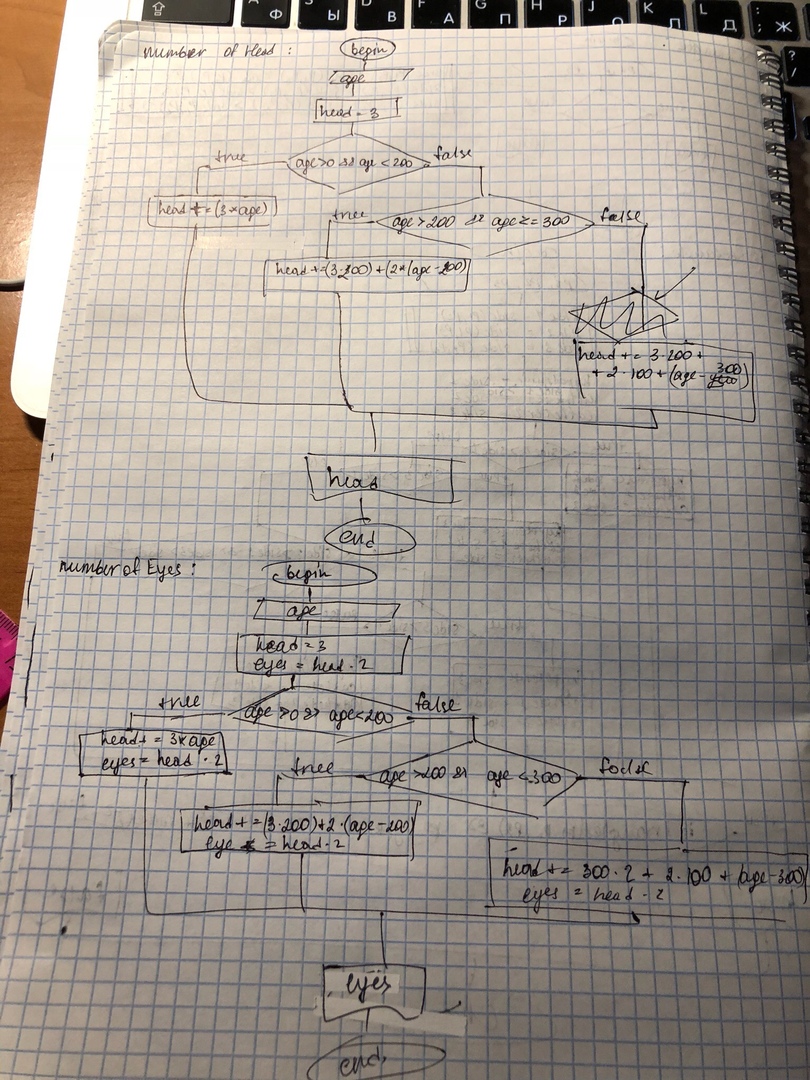 Ф Ы В А П Р О Л Д Ж
F S D F G H J K L
number of Head :
begin
age
head = 3
true
age>0 && age < 200
false
head += (3*age)
true
age > 200 && age <= 300
false
head += (3·200) + (2*(age-200)
head += 3·200 +
+ 2·100 + (age - 300)
head
end
number of Eyes :
begin
age
head = 3
eyes = head · 2
true
age >0 && age<200
false
head += 3*age
eyes = head · 2
true
age >200 && age <300
false
head += (3·200)+2·(age-200)
eye = head·2
head += 300·2 + 2·100 + (age-300)
eyes = head · 2
eyes
end